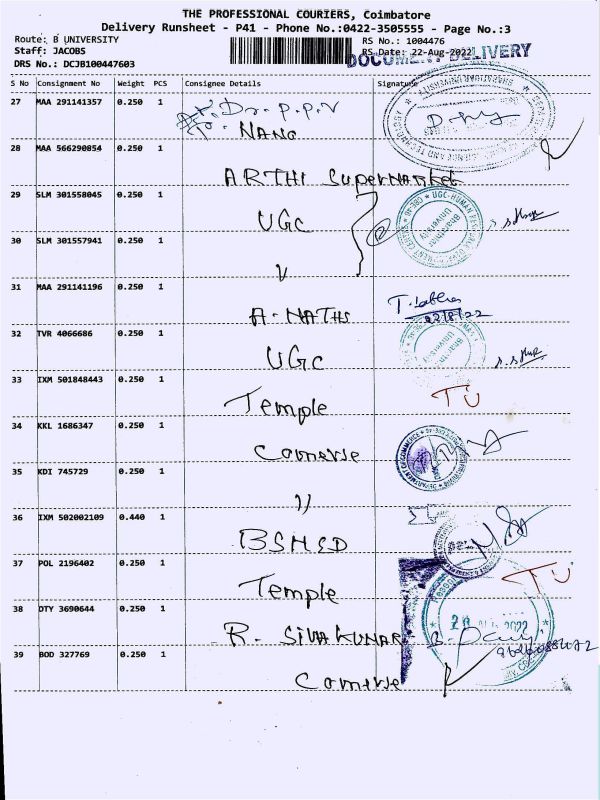 THE PROFESSIONAL COURIERS, Coimbatore
Delivery Runsheet - P41 - Phone No.:0422-3505555 - Page No.:3
Route: B UNIVERSITY
RS No.: 1004476
Staff: JACOBS
RS Date: 22-Aug-2022
DOCUMENT DELIVERY
DRS No.: DCJB100447603
S No Consignment No Weight PCS Consignee Details Signature
27 MAA 291141357 0.250 1 Dr. P.P.V
NANO
28 MAA 566290854 0.250 1
ARTHI SuperMarket
29 SLM 301558045 0.250 1
UGC
30 SLM 301557941 0.250 1
31 MAA 291141196 0.250 1
A. NATHS
22/8/22
32 TVR 4066686 0.250 1
UGC
33 IXM 501848443 0.250 1
Temple TU
34 KKL 1686347 0.250 1
35 KDI 745729 0.250 1
36 IXM 502002109 0.440 1
BSMED
37 POL 2196402 0.250 1
Temple TU
38 DTY 3690644 0.250 1
R. SIVAKUMAR
39 BOD 327769 0.250 1